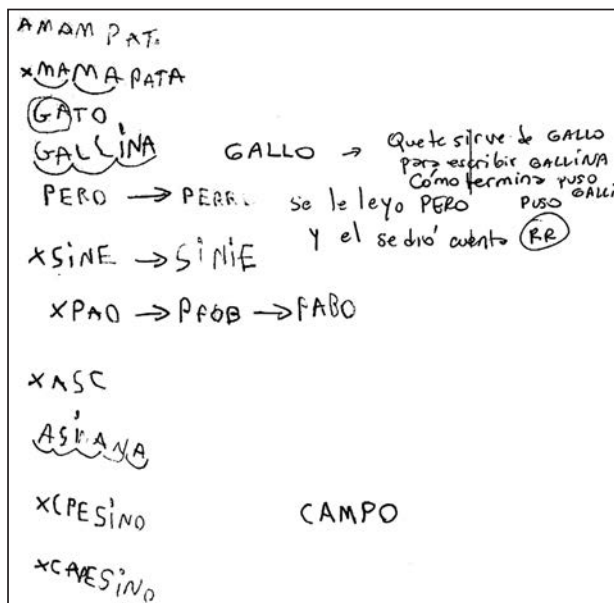 AMAM PAT.
xMAMA PATA
GATO
GALLINA GALLO → Que te sirve de GALLO
para escribir GALLINA
Cómo termina puso
PERO → PERR se le leyo PERO PUSO GALLI
y el se dió cuenta RR
xSiNE → SiNiE
xPAO → PFOB → FABO
xASC
ASiANA
xCPESiNO CAMPO
xCAPESiNO